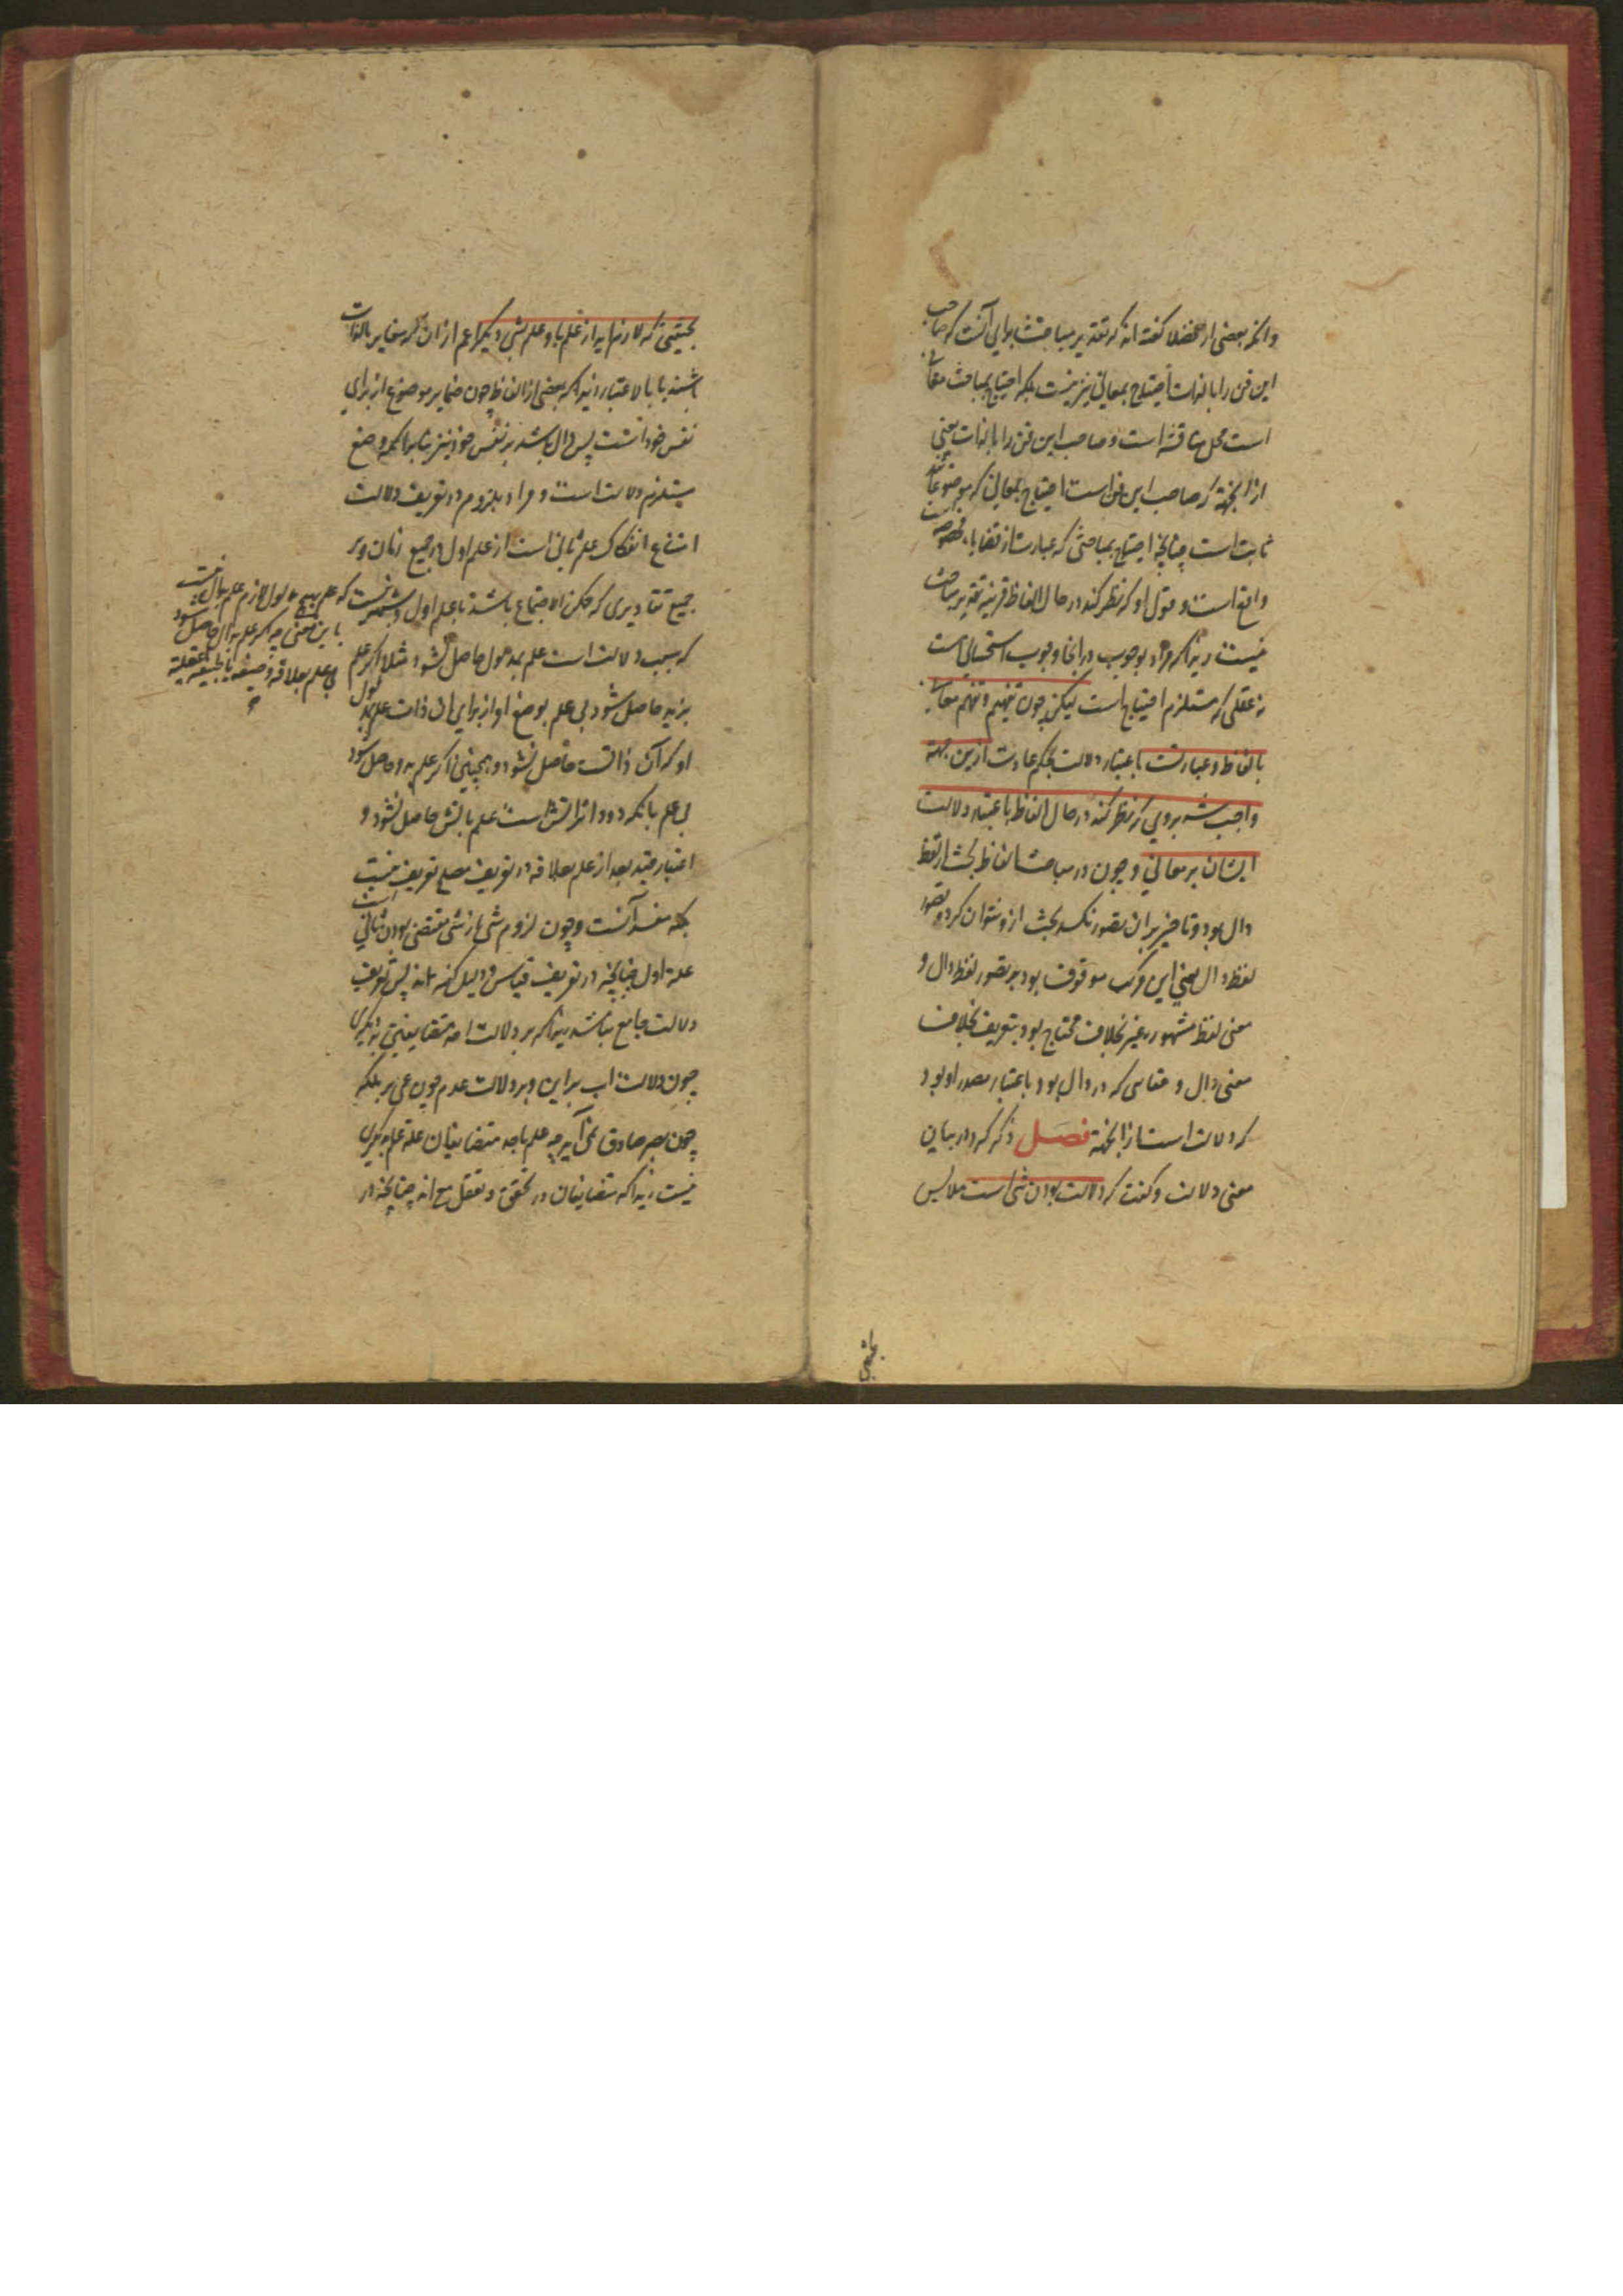 وانکه بعضی از فضلا گفته اند که تقدیر مباحث برای آنست که صاحب
این فن را بالذات احتیاج بمعانی نیز نیست بلکه احتیاج بمباحث معانی
است محل مناقشه است و صاحب این فن را بالذات یعنی
ازانجهة که صاحب این فن است احتیاج بمعانی که موضوعاتند
ثابت است چنانچه احتیاج بمباحثی که عبارت از قضایاء مخصوصه است
واقع است و قول او که نظر کند در حال الفاظ قرینه تقدیر مباحث
نیست زیراکه مراد بوجوب درانجا وجوب استحسانی است
نه عقلی که مستلزم احتیاج است لیکن چون تفهیم و تفهم معانی
بالفاظ و عبارتست باعتبار دلالت بحکم عادت ازین جهة
واجب شد بروی که نظر کند در حال الفاظ باعتبار دلالت
ایشان بر معانی و چون در مباحث الفاظ بحث از لفظ
دال بود و تا خبر بران تصور نکنند بحث ازو نتوان کرد و تصور
لفظ دال یعنی این مرکب موقوف بود بر تصور لفظ دال و
معنی لفظ مشهور غیر خلاف محتاج بود بتعریف بخلاف
معنی دال و خفایی که در دال بود باعتبار مصدر او بود
که دلالت است ازانجهة فصل ذکر کرد در بیان
معنی دلالت و گفت که دلالت بودن شئ است ملابس
بحیثیتی
بحیثیتی که لازم آید از علم باو علم بشئ دیگر اعم ازان که متغایر بالذات
باشند یا بالاعتبار زیراکه بعضی از الفاظ چون ضمایر موضوع از برای
نفس خود است پس دال باشد بر نفس خود نیز بنابرانکه وضع
مستلزم دلالت است و مراد بلزوم در تعریف دلالت
امتناع انفکاک علم ثانی است از علم اول در جمیع زمان و بر
جمیع تقادیری که ممکن الاجتماع باشند با علم اول
که سبب دلالت است علم بمدلول حاصل نشود مثلا اگر علم
بزید حاصل شود بی علم بوضع او از برای ان ذات علم بمدلول
او که آن ذات است حاصل نشود و همچنین اگر علم بدود حاصل شود
بی علم بانکه دود اثر آتش است علم بآتش حاصل نشود و
اعتبار قید بعد از علم بعلاقه در تعریف مصلح تعریف نیست
بلکه مفسد آنست و چون لزوم شئ از شئ مقتضی بودن ثانی است
علة اول چنانچه در تعریف قیاس و دلیل گفته اند پس تعریف
دلالت جامع نباشد زیراکه بر دلالت احد متضایفین بر دیگری
چون دلالت اب بر ابن و بر دلالت عدم چون عمی بر ملکه
چون بصر صادق نمی آید چه علم باحد متضایفان علة علم بدیگری
نیست زیراکه متضایفان در تحقق و تعقل مع اند چنانچه در
که علم بهیچ مدلول لازم علم بدال نیست
باین معنی چه اگر علم بدال حاصل شود
بی علم بعلاقه وضعیه یا طبیعیه یا عقلیه